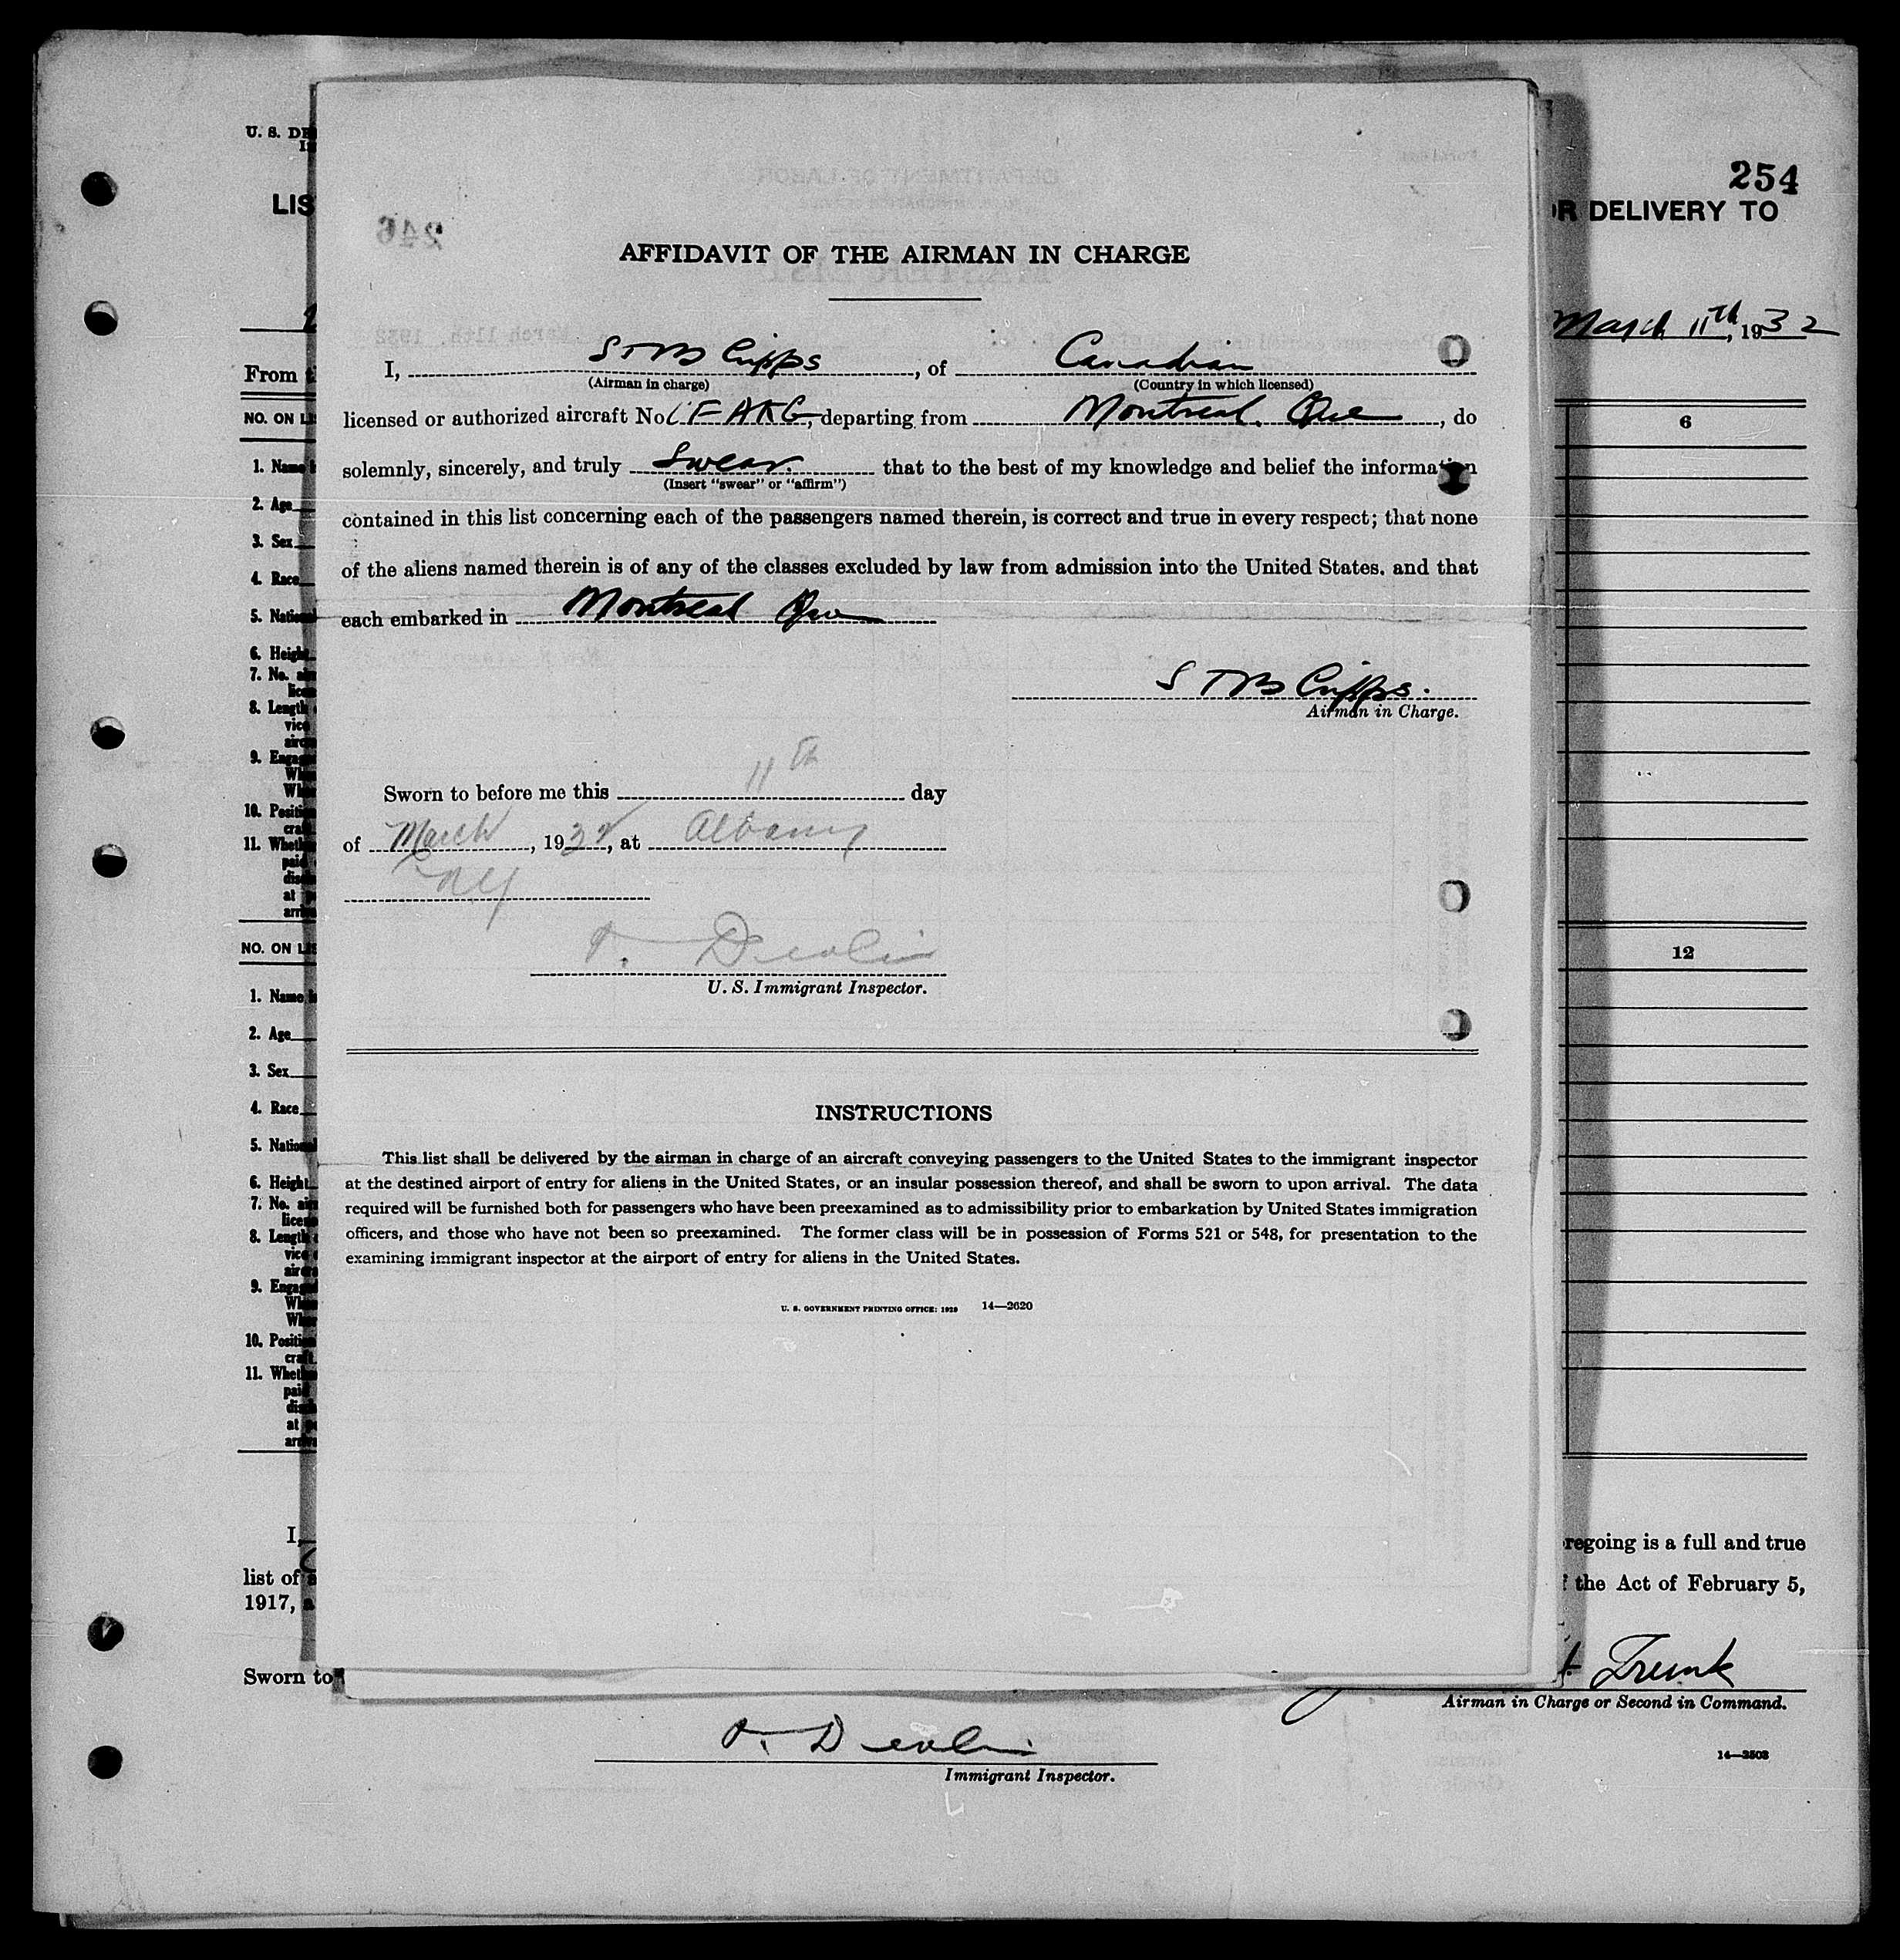 U. S. DE
LIS
254
OR DELIVERY TO
March 11th, 1932
From t
NO. ON LIS
6
1. Name
2. Age
3. Sex
4. Race
5. National
6. Height
7. No.
lice
8. Length
vice
airc
9. Engag
Wh
Wh
10. Positi
craf
11. Wheth
paid
dis
at p
arri
NO. ON LIS
12
1. Name
2. Age
3. Sex
4. Race
5. Nation
6. Height
7. No. air
licen
8. Length
vice
airc
9. Engag
Wh
Wh
10. Positi
craf
11. Wheth
paid
dis
at
arri
I,
regoing is a full and true
list of
the Act of February 5,
1917, a
Sworn to
t. Trunk
Airman in Charge or Second in Command.
T. Devlin
Immigrant Inspector.
14—2503
246
AFFIDAVIT OF THE AIRMAN IN CHARGE
I, STB Cripps, of Canadian
(Airman in charge) (Country in which licensed)
licensed or authorized aircraft No. CF AKG, departing from Montreal. Que, do
solemnly, sincerely, and truly Swear. that to the best of my knowledge and belief the information
(Insert "swear" or "affirm")
contained in this list concerning each of the passengers named therein, is correct and true in every respect; that none
of the aliens named therein is of any of the classes excluded by law from admission into the United States, and that
each embarked in Montreal Que
STB Cripps.
Airman in Charge.
Sworn to before me this 11th day
of March, 1932, at Albany
NY
T. Devlin
U. S. Immigrant Inspector.
INSTRUCTIONS
This list shall be delivered by the airman in charge of an aircraft conveying passengers to the United States to the immigrant inspector
at the destined airport of entry for aliens in the United States, or an insular possession thereof, and shall be sworn to upon arrival. The data
required will be furnished both for passengers who have been preexamined as to admissibility prior to embarkation by United States immigration
officers, and those who have not been so preexamined. The former class will be in possession of Forms 521 or 548, for presentation to the
examining immigrant inspector at the airport of entry for aliens in the United States.
U. S. GOVERNMENT PRINTING OFFICE: 1929 14—2620